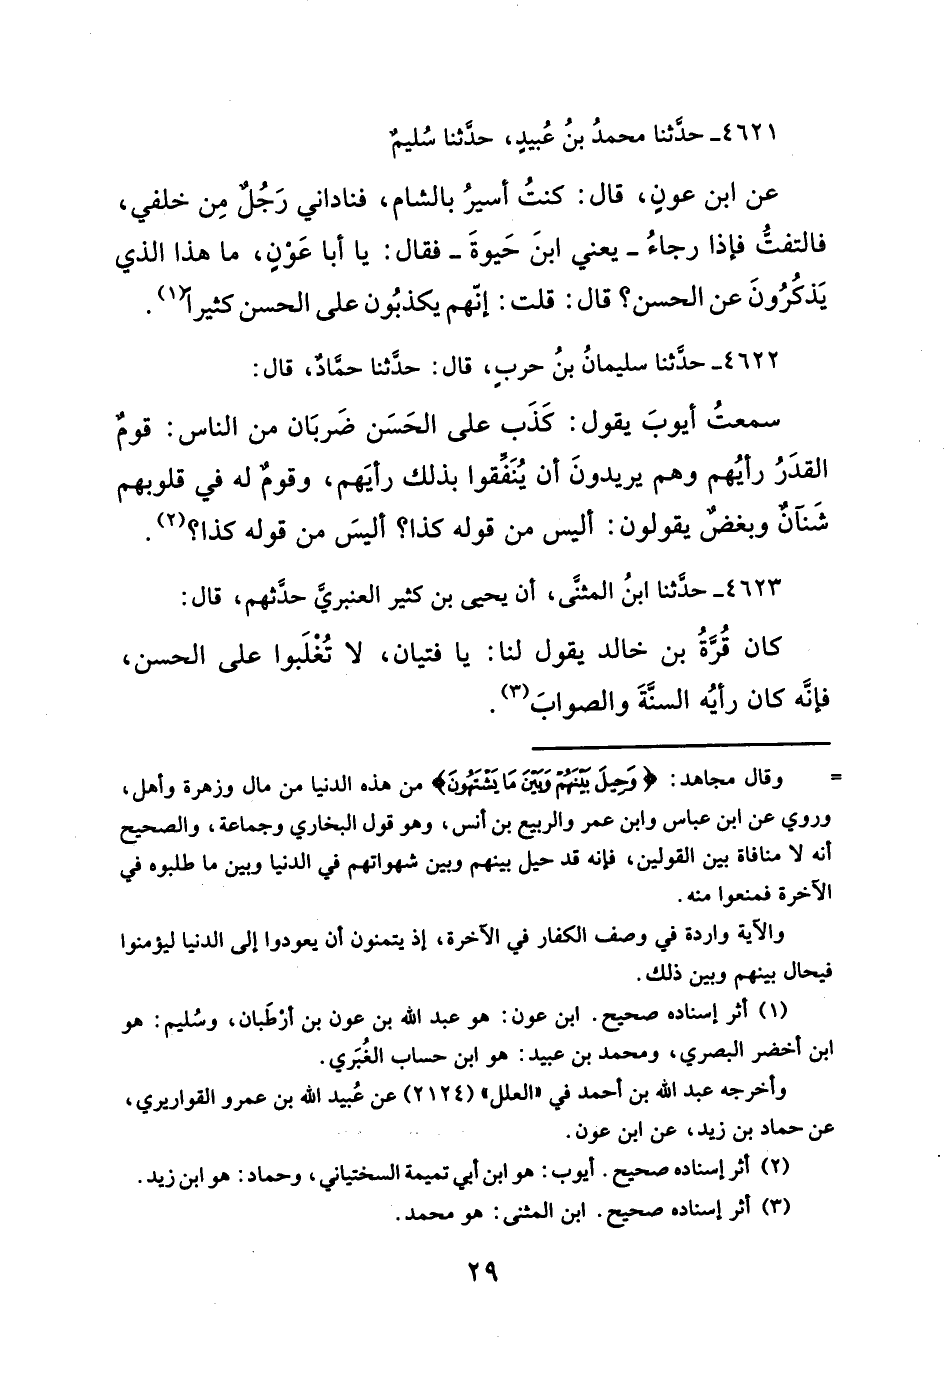 ٤٦٢١ـ حدَّثنا محمدُ بنُ عُبيدٍ، حدَّثنا سُليمٌ
عن ابن عونٍ، قال: كنتُ أسيرُ بالشام، فناداني رَجُلٌ مِن خلفي،
فالتفتُّ فإذا رجاءُ ـ يعني ابنَ حَيوةَ ـ فقال: يا أبا عَوْنٍ، ما هذا الذي
يَذكُرُونَ عن الحسن؟ قال: قلت: إنّهم يكذبُون على الحسن كثيراً(١).
٤٦٢٢ـ حدَّثنا سليمانُ بنُ حربٍ، قال: حدَّثنا حمَّادٌ، قال:
سمعتُ أيوبَ يقول: كَذَب على الحَسَن ضَربَان من الناس: قومٌ
القدَرُ رأيُهم وهم يريدونَ أن يُنَفِّقوا بذلك رأيَهم، وقومٌ له في قلوبهم
شَنآنٌ وبغضٌ يقولون: أليس من قوله كذا؟ أليسَ من قوله كذا؟(٢).
٤٦٢٣ـ حدَّثنا ابنُ المثنَّى، أن يحيى بن كثير العنبريَّ حدَّثهم، قال:
كان قُرَّةُ بن خالد يقول لنا: يا فتيان، لا تُغْلَبوا على الحسن،
فإنَّه كان رأيُه السنَّةَ والصوابَ(٣).
= وقال مجاهد: ﴿وَحِيلَ بَيْنَهُمْ وَبَيْنَ مَا يَشْتَهُونَ﴾ من هذه الدنيا من مال وزهرة وأهل،
وروي عن ابن عباس وابن عمر والربيع بن أنس، وهو قول البخاري وجماعة، والصحيح
أنه لا منافاة بين القولين، فإنه قد حيل بينهم وبين شهواتهم في الدنيا وبين ما طلبوه في
الآخرة فمنعوا منه.
والآية واردة في وصف الكفار في الآخرة، إذ يتمنون أن يعودوا إلى الدنيا ليؤمنوا
فيحال بينهم وبين ذلك.
(١) أثر إسناده صحيح. ابن عون: هو عبد الله بن عون بن أرْطَبان، وسُليم: هو
ابن أخضر البصري، ومحمد بن عبيد: هو ابن حساب الغُبَري.
وأخرجه عبد الله بن أحمد في «العلل» (٢١٢٤) عن عُبيد الله بن عمرو القواريري،
عن حماد بن زيد، عن ابن عون.
(٢) أثر إسناده صحيح. أيوب: هو ابن أبي تميمة السختياني، وحماد: هو ابن زيد.
(٣) أثر إسناده صحيح. ابن المثنى: هو محمد.
٢٩